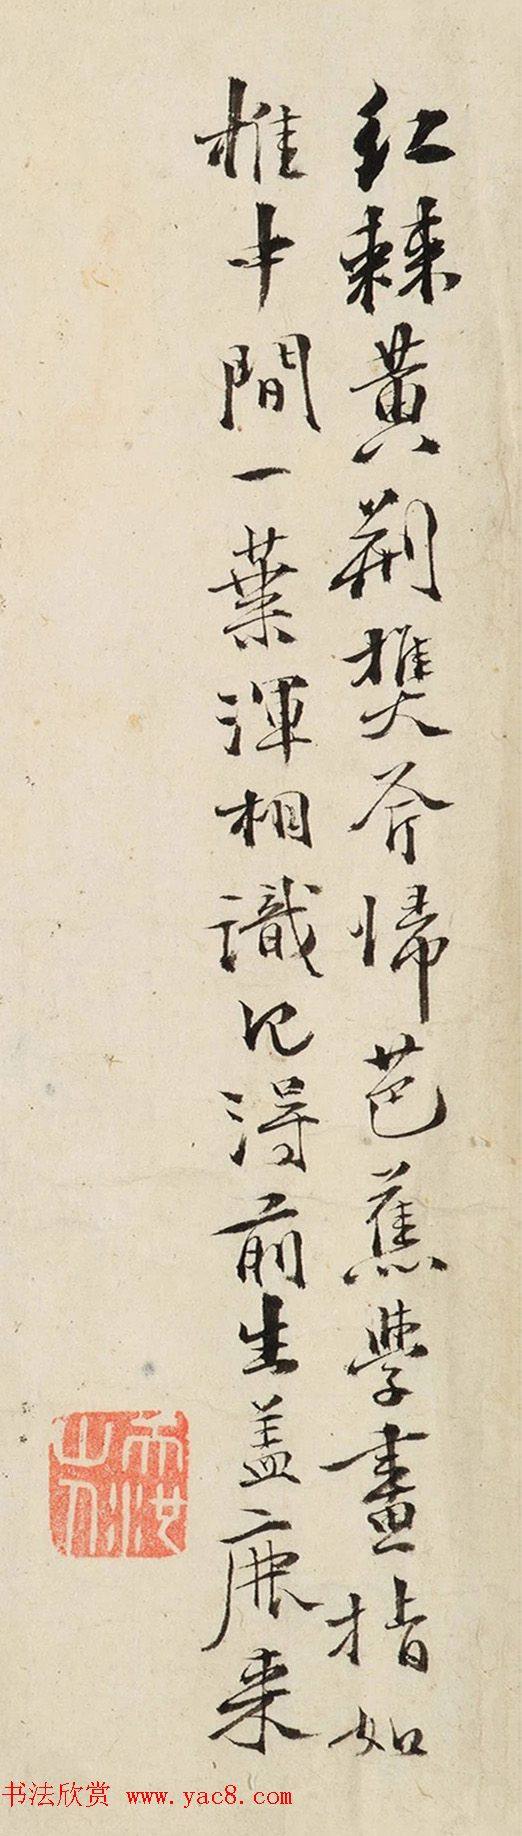 红棘黄荆樵斧歸芭蕉學畫指如
椎中間一葉渾相識记得前生蓋鹿来
书法欣赏 www.yac8.com